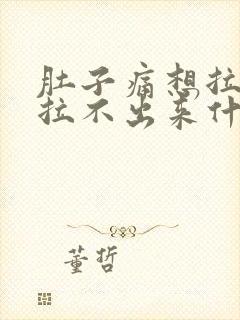 肚子痛想拉
拉不出来什
董哲